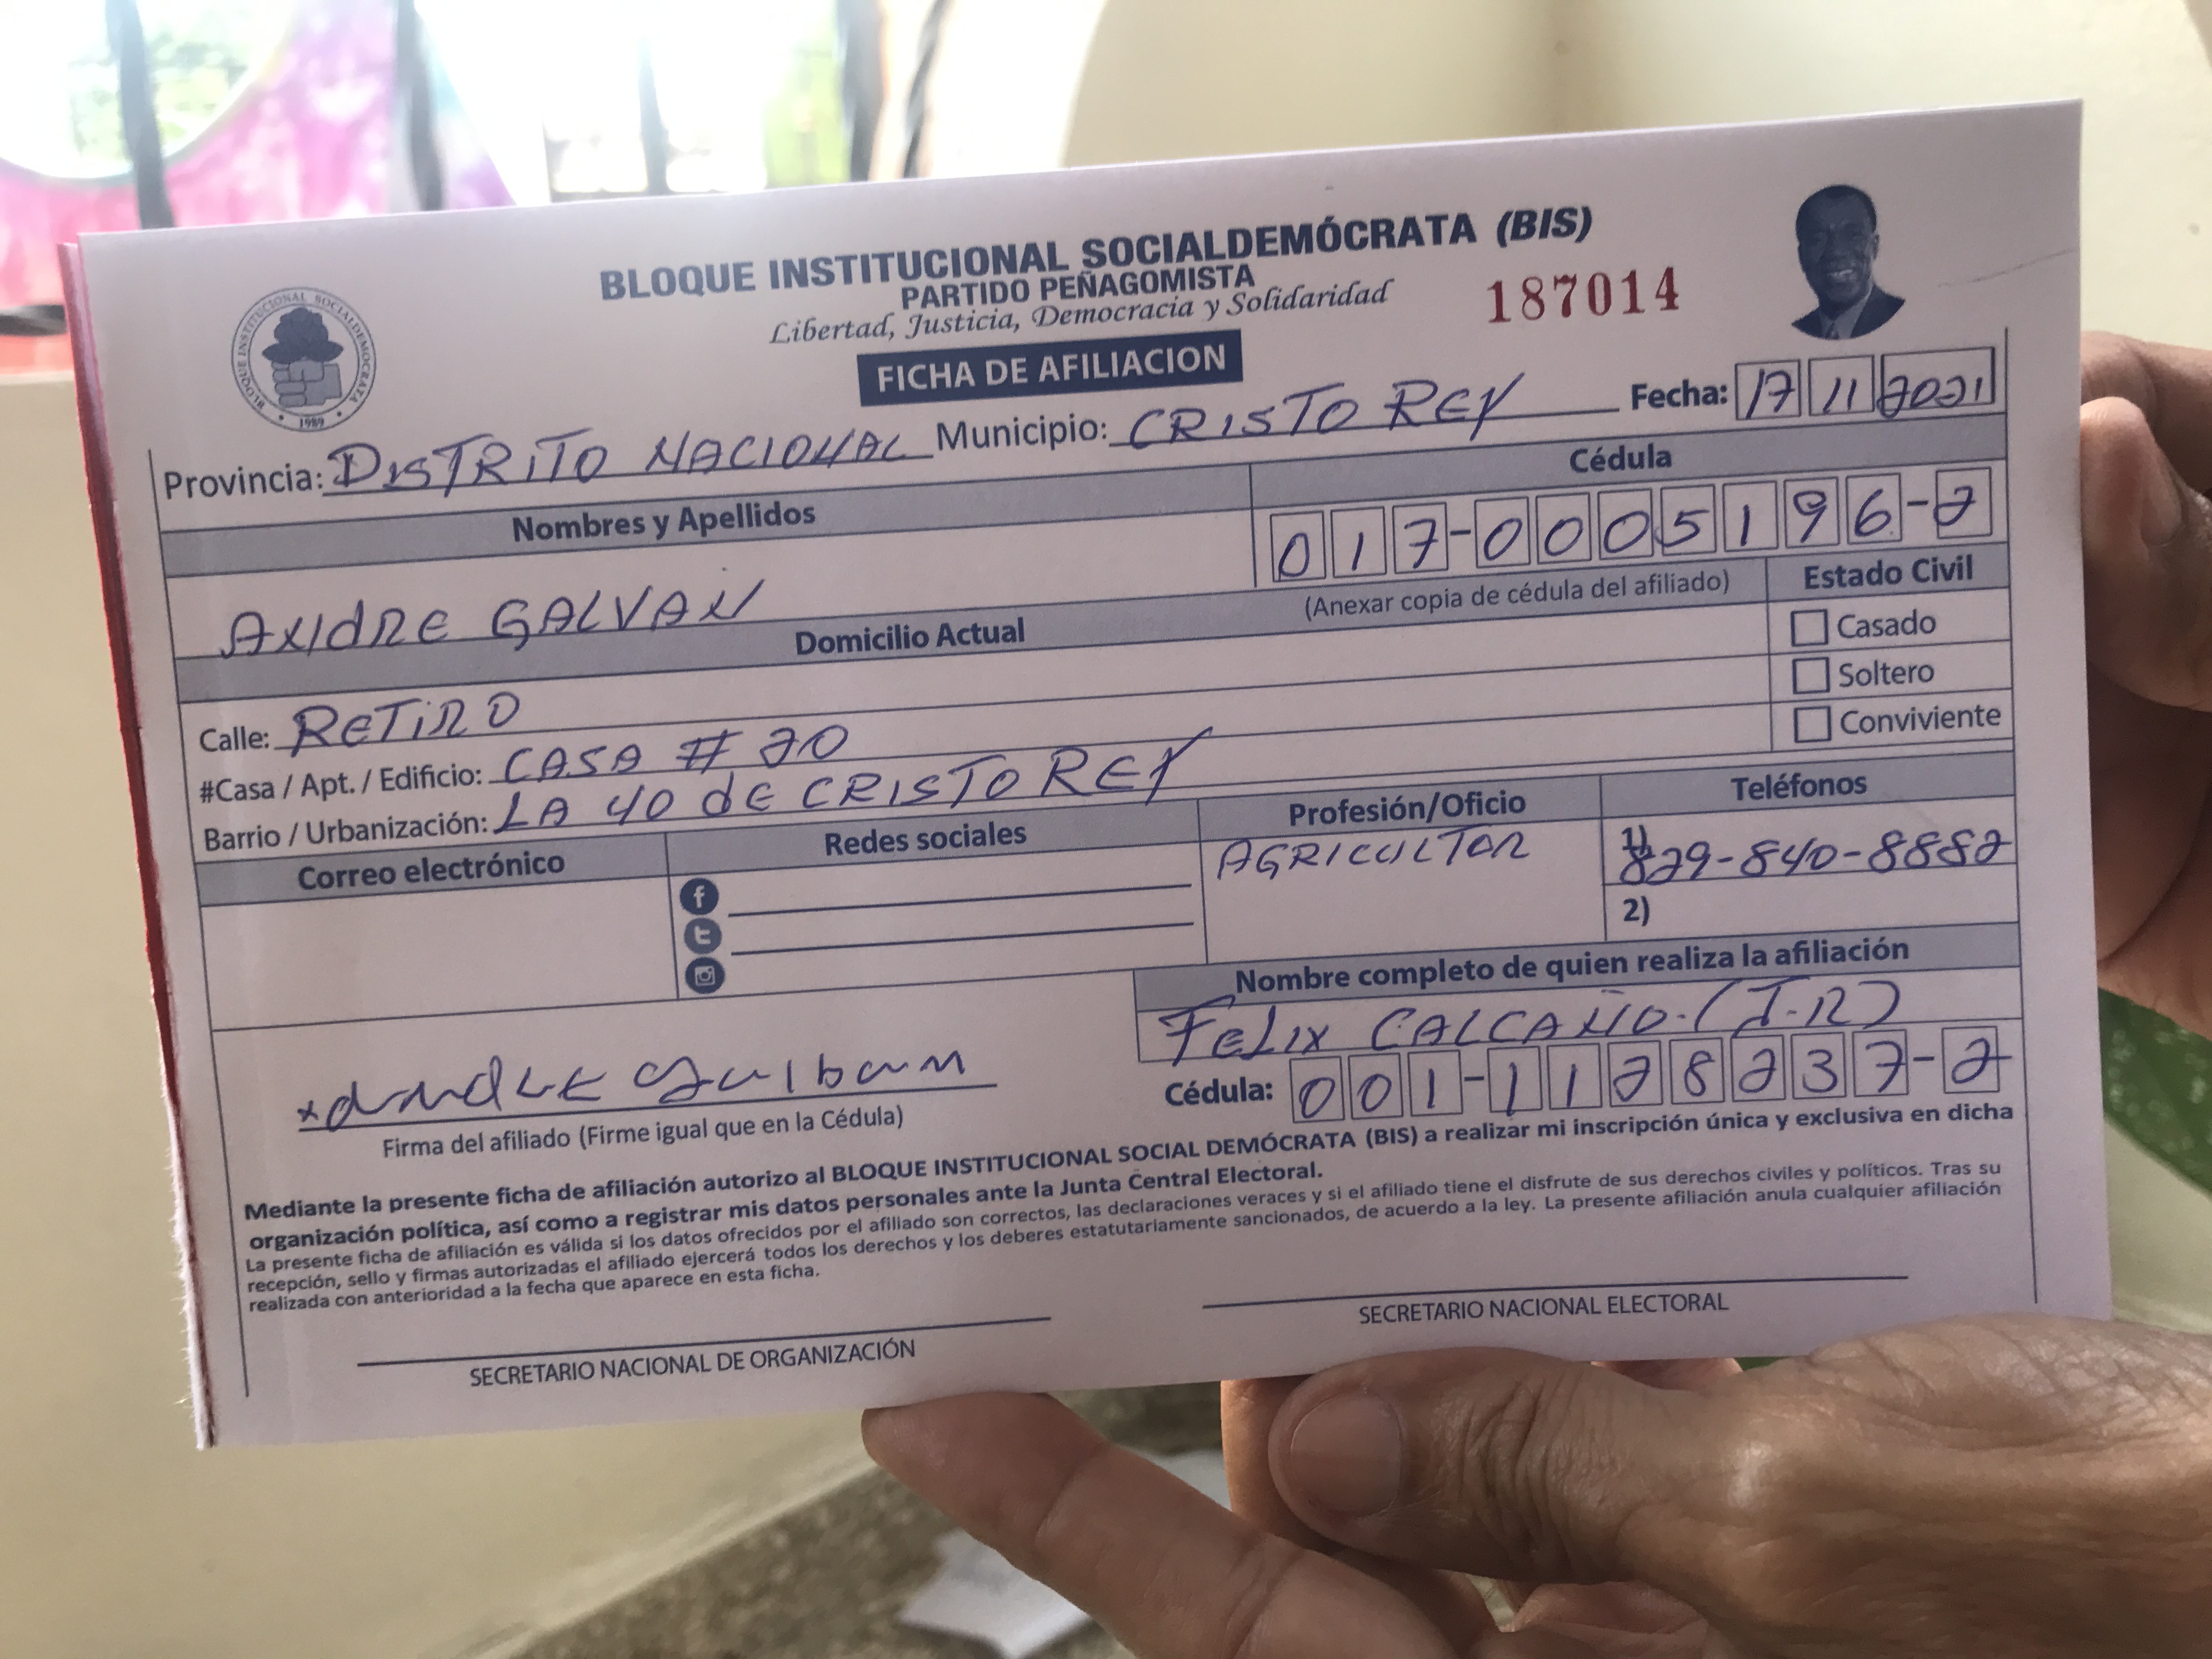 BLOQUE INSTITUCIONAL SOCIALDEMÓCRATA (BIS)
PARTIDO PEÑAGOMISTA
Libertad, Justicia, Democracia y Solidaridad
187014
BLOQUE INSTITUCIONAL SOCIALDEMOCRATA
1989
FICHA DE AFILIACION
Fecha: 17 11 2021
Provincia: DISTRITO NACIONAL Municipio: CRISTO REY
Nombres y Apellidos
Cédula
017-0005196-2
ANDRE GALVAN
(Anexar copia de cédula del afiliado)
Estado Civil
Domicilio Actual
Casado
Soltero
Conviviente
Calle: RETIRO
#Casa / Apt. / Edificio: CASA # 20
Barrio / Urbanización: LA 40 dE CRISTO REY
Correo electrónico
Redes sociales
Profesión/Oficio
Teléfonos
AGRICULTOR
1) 829-840-8882
2)
Nombre completo de quien realiza la afiliación
FELIX CALCAÑO. (J.R)
Cédula: 001-1128237-2
Firma del afiliado (Firme igual que en la Cédula)
Mediante la presente ficha de afiliación autorizo al BLOQUE INSTITUCIONAL SOCIAL DEMÓCRATA (BIS) a realizar mi inscripción única y exclusiva en dicha
organización política, así como a registrar mis datos personales ante la Junta Central Electoral.
La presente ficha de afiliación es válida si los datos ofrecidos por el afiliado son correctos, las declaraciones veraces y si el afiliado tiene el disfrute de sus derechos civiles y políticos. Tras su
recepción, sello y firmas autorizadas el afiliado ejercerá todos los derechos y los deberes estatutariamente sancionados, de acuerdo a la ley. La presente afiliación anula cualquier afiliación
realizada con anterioridad a la fecha que aparece en esta ficha.
SECRETARIO NACIONAL DE ORGANIZACIÓN
SECRETARIO NACIONAL ELECTORAL